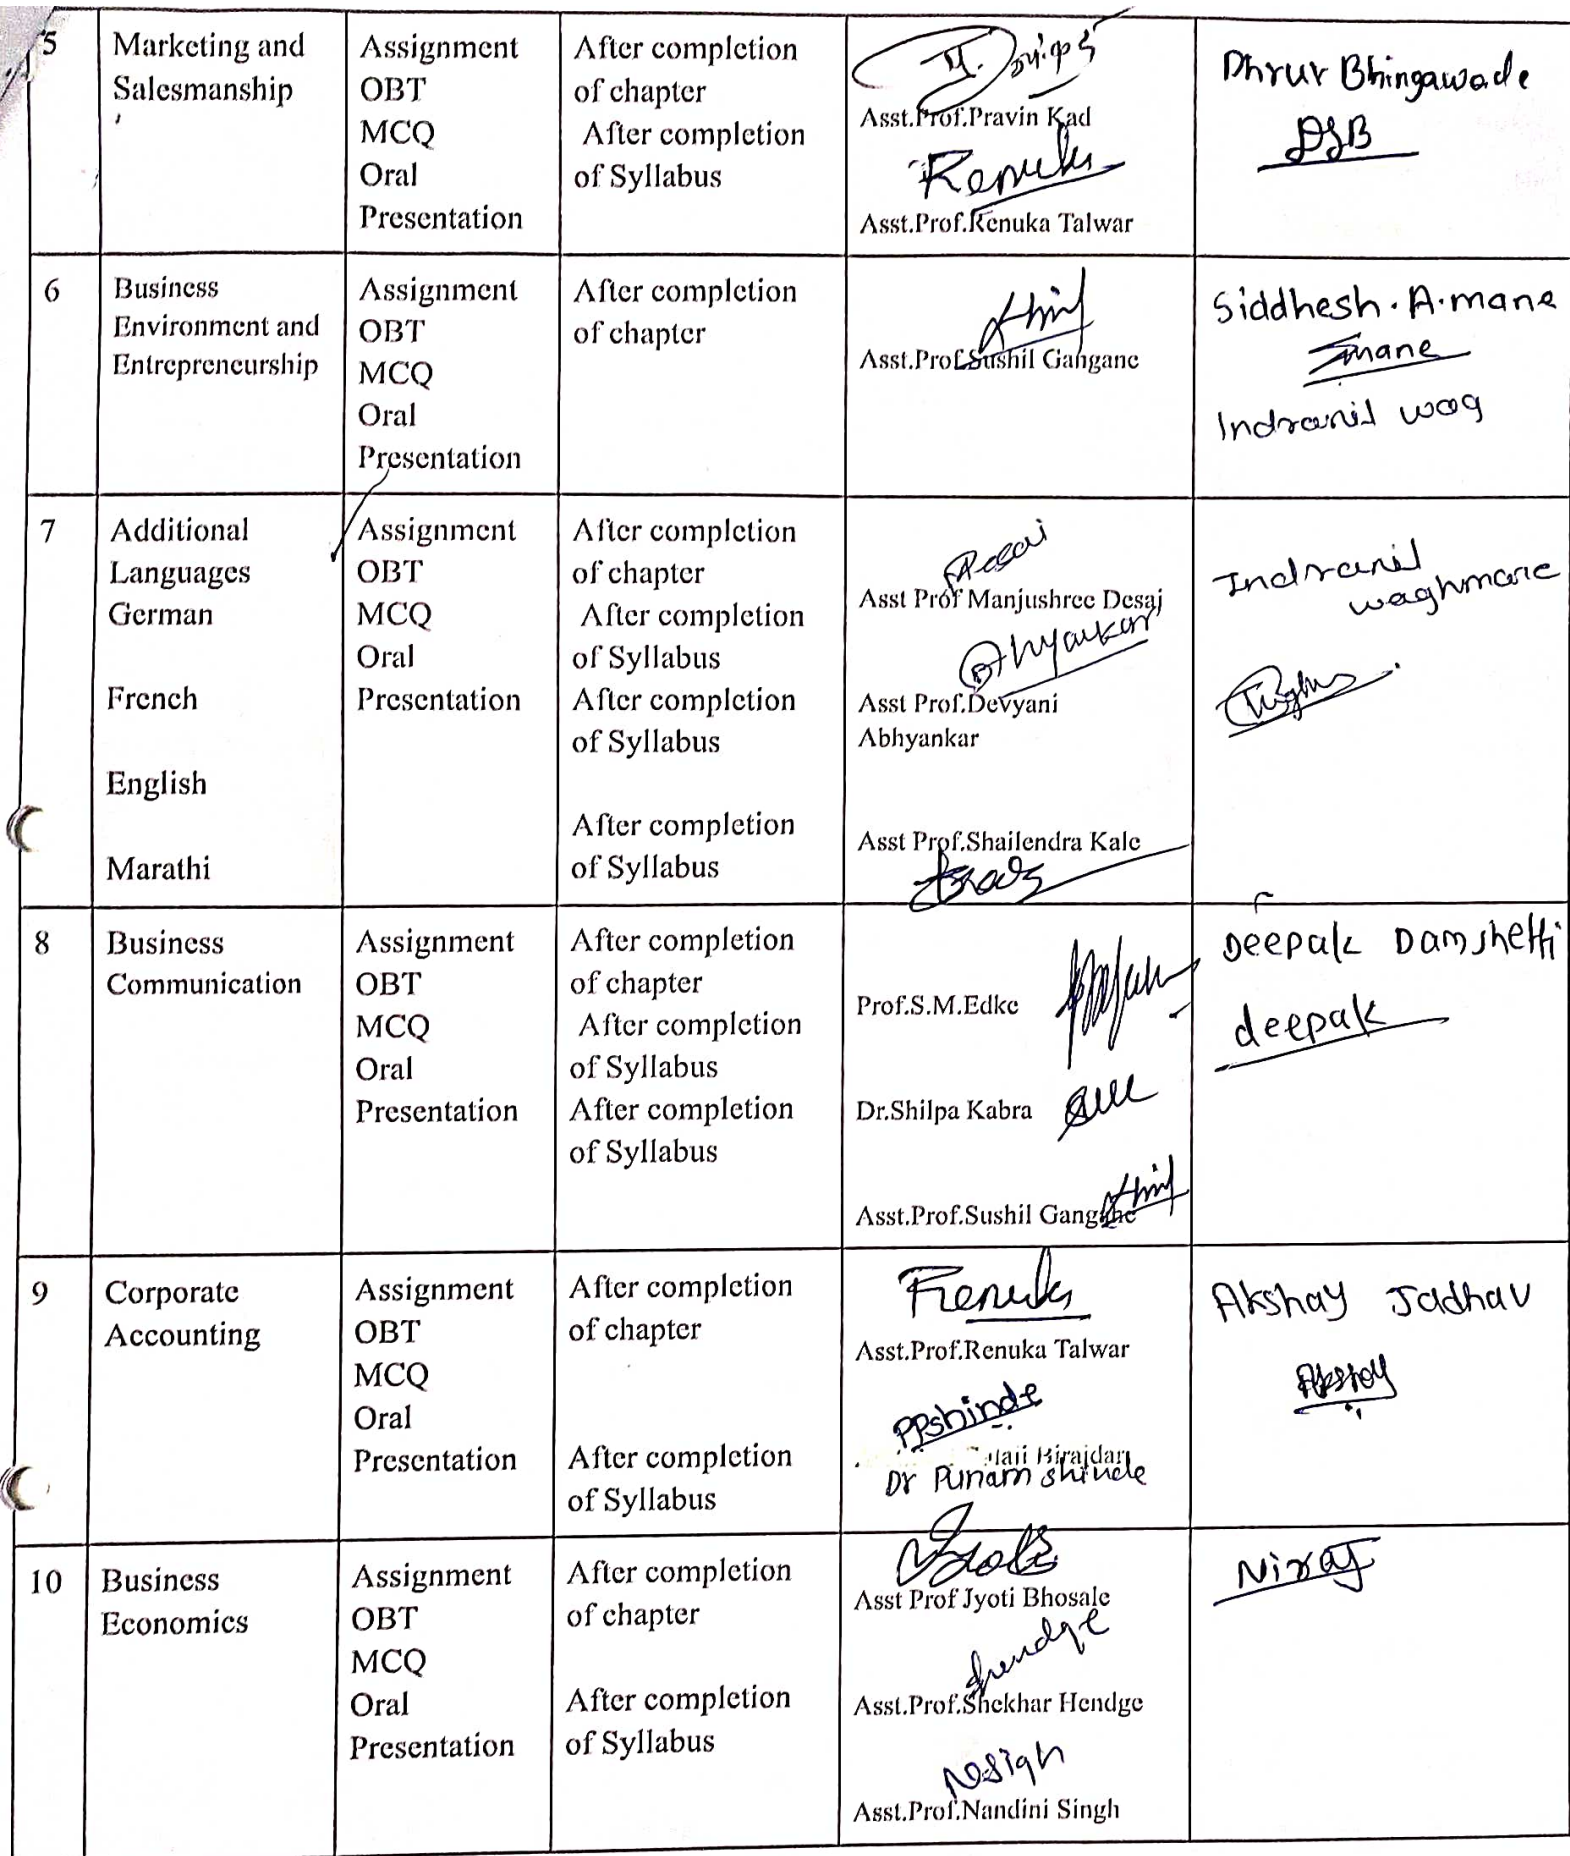 5
Marketing and
Salesmanship
Assignment
OBT
MCQ
Oral
Presentation
After completion
of chapter
After completion
of Syllabus
Asst.Prof.Pravin Kad
Renuka
Asst.Prof.Renuka Talwar
Dhruv Bhingawade
DSB
6
Business
Environment and
Entrepreneurship
Assignment
OBT
MCQ
Oral
Presentation
After completion
of chapter
Asst.Prof.Sushil Gangane
Siddhesh.A.mane
Smane
Indranil wag
7
Additional
Languages
German
French
English
Marathi
Assignment
OBT
MCQ
Oral
Presentation
After completion
of chapter
After completion
of Syllabus
After completion
of Syllabus
After completion
of Syllabus
Desai
Asst Prof Manjushree Desai
Abhyankar
Asst Prof.Devyani
Abhyankar
Asst Prof.Shailendra Kale
Indranil
waghmare
8
Business
Communication
Assignment
OBT
MCQ
Oral
Presentation
After completion
of chapter
After completion
of Syllabus
After completion
of Syllabus
Prof.S.M.Edke
Dr.Shilpa Kabra
Asst.Prof.Sushil Gangane
Deepak Damshetti
deepak
9
Corporate
Accounting
Assignment
OBT
MCQ
Oral
Presentation
After completion
of chapter
After completion
of Syllabus
Renuka
Asst.Prof.Renuka Talwar
PPshinde
Birajdar
Dr Punam shinde
Akshay Jadhav
Akshay
10
Business
Economics
Assignment
OBT
MCQ
Oral
Presentation
After completion
of chapter
After completion
of Syllabus
Asst Prof Jyoti Bhosale
Hendge
Asst.Prof.Shekhar Hendge
Asst.Prof.Nandini Singh
Niraj